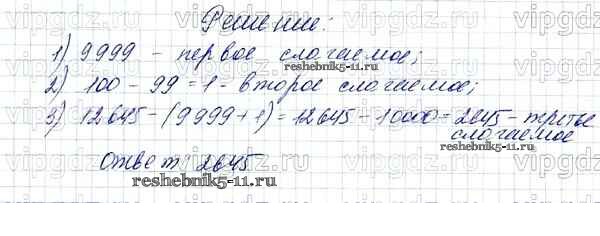 Решение:
1) 9999 - первое слагаемое;
reshebnik5-11.ru
2) 100 - 99 = 1 - второе слагаемое;
3) 12645 - (9999 + 1) = 12645 - 10000 = 2645 - третье
слагаемое
reshebnik5-11.ru
Ответ: 2645.
reshebnik5-11.ru
vipgdz.ru vipgdz.ru vipgdz.ru vipgdz.ru